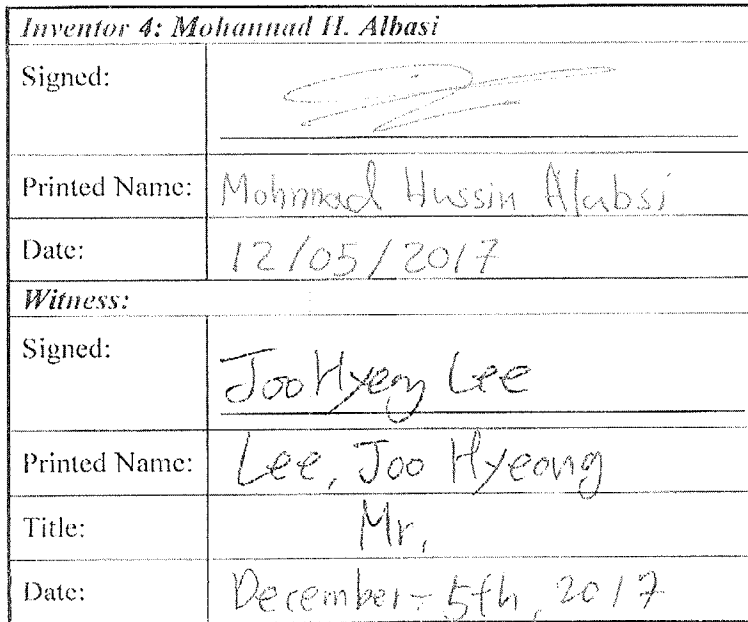 Inventor 4: Mohannad H. Albasi
Signed:
Printed Name: Mohmmad Hussin Alabsi
Date: 12/05/2017
Witness:
Signed: Joo Hyeong Lee
Printed Name: Lee, Joo Hyeong
Title: Mr.
Date: December - 5th, 2017